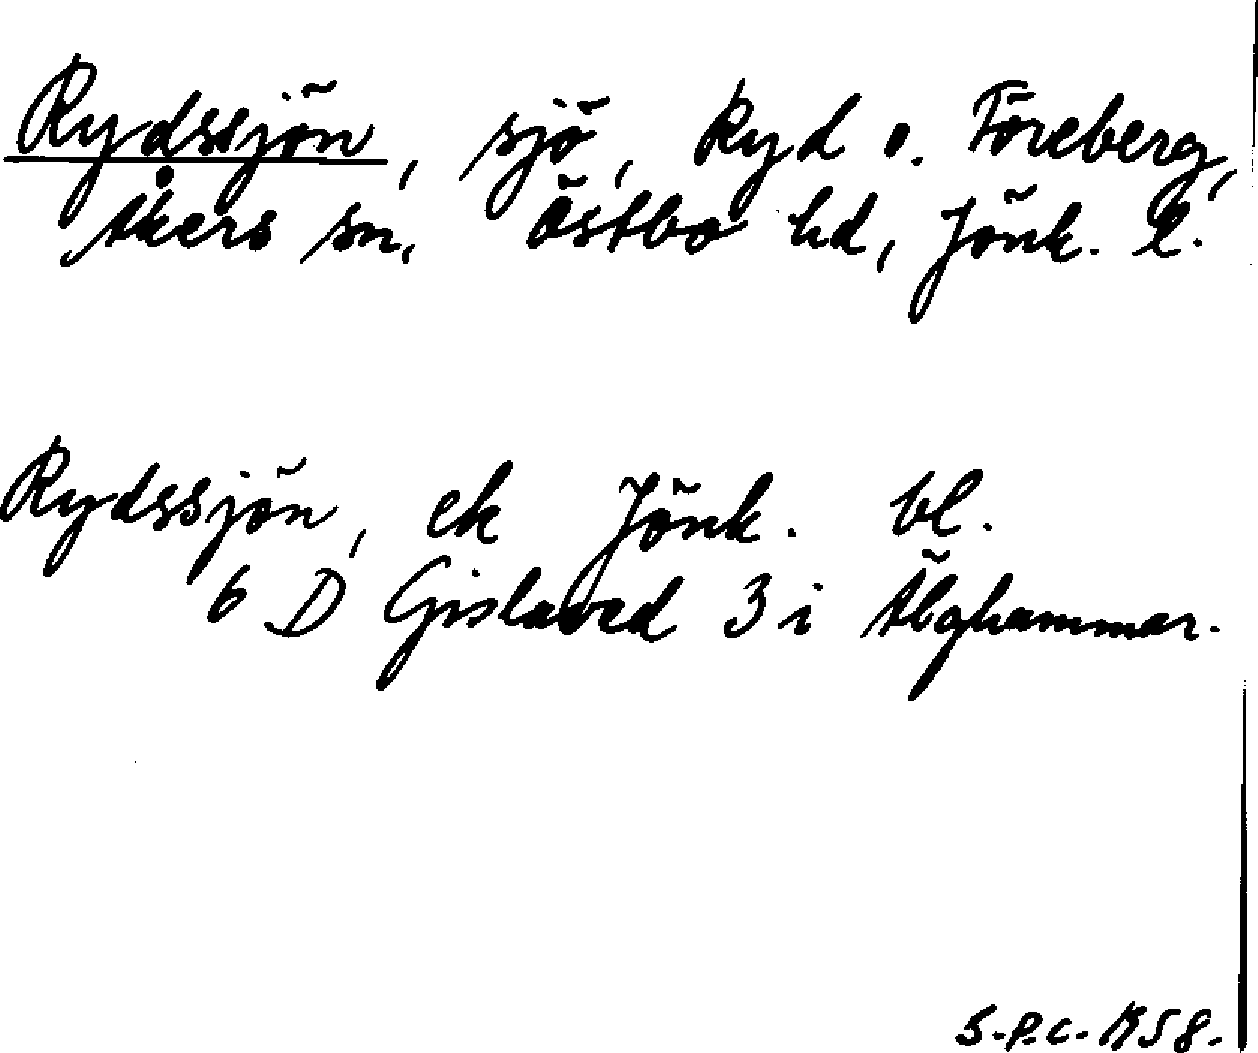 Rydssjön, sjö, Ryd o. Föreberg,
Åkers sn, Östbo hd, Jönk. l.
Rydssjön, ek Jönk. bl.
6 D Gislaved 3 i Älghammar.
S.P.C. 1958.